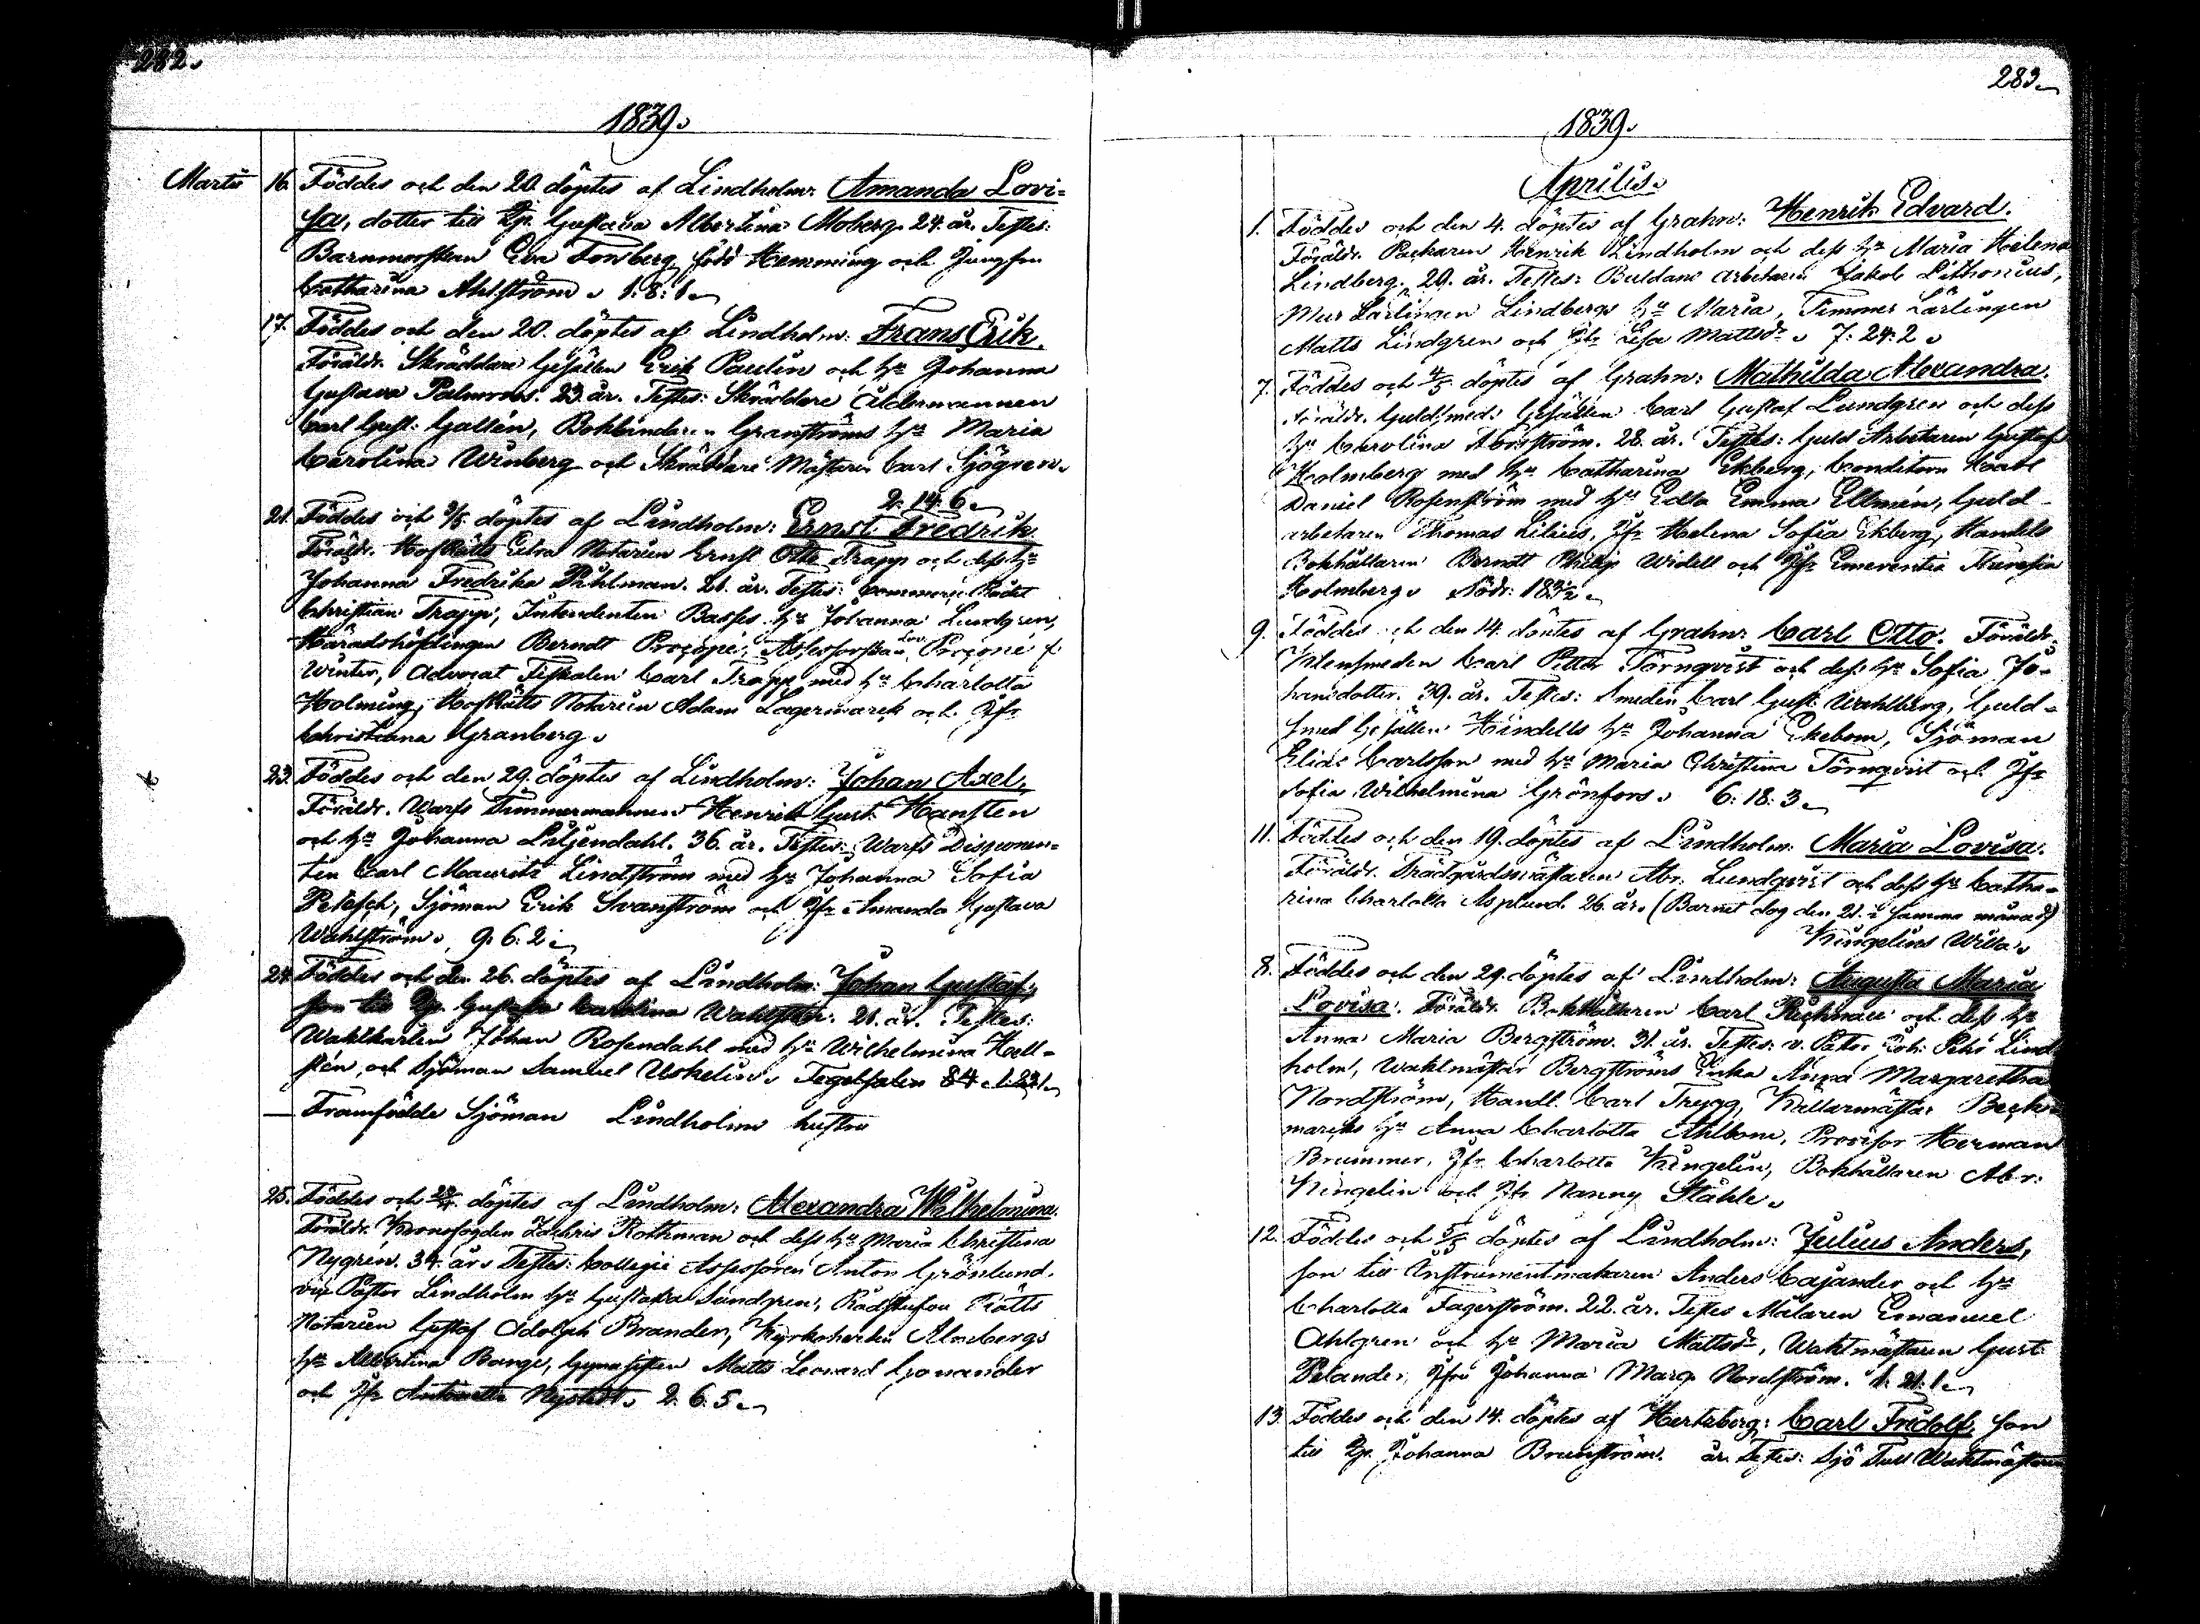 282.
1839.
Martii 16. Föddes och den 20. döptes af Lindholm: Amanda Lovi-
sa, dotter till Gustava Albertina Moberg 24. år. Testes:
Barnmorskan Eva Forsberg, född Hemming och Jungfru
Catharina Ahlström. 1: 8: 1.
17. Föddes och den 20. döptes af Lindholm: Frans Erik.
Föräldr. Skräddare Gesällen Erik Paulin och h:u Johanna
Gustava Palmroos. 23. år. Testes: Skräddare Åldermannen
Carl Gust: Gallén, Bokbindaren Granströms h:u Maria
Carolina Winberg och Skräddare Mästaren Carl Sjögren.
2. 14. 6.
21. Föddes och döptes af Lindholm: Ernst Fredrik.
Föräldr. HofRätts Extra Notarien Ernst Otto Trapp och dess h:u
Johanna Fredrika Pihlman. 21. år. Testes: Commerse Rådet
Christian Trapp, Intendenten Basses h:u Johanna Lundgren,
Häradshöfdingen Berndt Procopé, Assessorskan Lov. Procopé f.
Winter, Advocat Fiskalen Carl Trapp med h:u Charlotta
Holming, HofRätts Notarien Adam Lagermarck och Jfr
Christiana Granberg.
23. Föddes och den 29. döptes af Lindholm: Johan Axel.
Föräldr. Warfs Timmermannen Henrik Gust. Hansten
och h:u Johanna Liljendahl. 36. år. Testes: Warfs Disponen-
ten Carl Mauritz Lindström med h:u Johanna Sofia
Sjöman Erik Svanström och Jfr Amanda Gustava
Wahlström. 9. 6. 2.
24. Föddes och den 26. döptes af Lindholm: Johan Gustaf,
son till Gustafva Carolina 21. år. Testes:
Wahlkarlen Johan Rosendahl med h:u Wilhelmina Hell-
stén, och Sjöman Samuel Uskelin. Tegelsalen
— Framfödde Sjöman Lindholms hustru
25. Föddes och döptes af Lindholm: Alexandra Wilhelmina.
Föräldr. Kronofogden Zachris Rothman och dess h:u Maria Christina
Nygrén. 34. år. Testes: Collegii Assessoren Anton Grönlund.
vice Pastor Lindholm h:u Gustafva Sundgren, Rådstufvu Rätts
Notarien Gustaf Adolph Brander, Kyrkoherden Almbergs
h:u Albertina Bange, Gymnasisten Matts Leonard Gonander
och Jfr Antoinette Nystedt. 2. 6. 5.
283.
1839.
Aprilis.
1. Föddes och den 4. döptes af Grahn: Henrik Edvard.
Föräldr. Packaren Henrik Lindholm och dess h:u Maria Helena
Lindberg. 29. år. Testes: Buldans Arbetaren Jakob Lithonius,
Mur Lärlingen Lindbergs h:u Maria, Timmer Lärlingen
Matts Lindgren och Lisa Mattsdr. 7: 24: 2.
7. Föddes och 4/5 döptes af Grahn: Mathilda Alexandra.
Föräldr. Guldsmeds Gesällen Carl Gustaf Lundgren och dess
h:u Carolina Norrström. 28. år. Testes: Guld Arbetaren Gustaf
Holmberg med h:u Catharina Ekberg, Conditorn
Daniel Rosenström med h:u Edla Emma Ellmén, Guld-
arbetaren Thomas Lilius, Jfr Helena Sofia Ekberg, Handels
Bokhållaren Berndt Philip Widell och Jfr Emerentia
Holmberg.
9. Föddes och den 14. döptes af Grahn: Carl Otto. Föräldr.
Klensmeden Carl Petter Törnqvist och dess h:u Sofia Jo-
hansdotter. 39. år. Testes: Smeden Carl Gust. Wahlberg, Guld-
smed Gesällen Hindells h:u Johanna Ekebom, Sjöman
Elias Carlsson med h:u Maria Christina Törnqvist och Jfr
Sofia Wilhelmina Grönfors. 6: 18: 3.
11. Föddes och den 19. döptes af Lindholm: Maria Lovisa.
Föräldr. Trädgårdsmästaren Abr. Lundqvist och dess h:u Catha-
rina Charlotta Asplund. 26. år. (Barnet dog den 21. i samma månad)
Kingelins Willa.
8. Föddes och den 29. döptes af Lindholm: Augusta Maria
Lovisa. Föräldr. Bokhållaren Carl och dess h:u
Anna Maria Bergström. 31. år. Testes: v. Pastor Joh: Petr Lind
holm, Waktmästar Bergströms Enka Anna Margaretha
Nordström, Handl. Carl Trygg, Källarmästar Beck-
marcks h:u Anna Charlotta Ahlbom, Provisor Herman
Brummer, Jfr Charlotta Kingelin, Bokhållaren Abr.
Kingelin och Jfr Nanny Ståhle.
12. Föddes och 5/5 döptes af Lindholm: Julius Anders,
son till Instrumentmakaren Anders Cajander och h:u
Charlotta Fagerström. 22. år. Testes Målaren Emanuel
Ahlgren och h:u Maria Mattsdr, Waktmästaren Gust.
Pelander, Jfru Johanna Marg. Nordström. 1. 21. 1.
13. Föddes och den 14. döptes af Hertzberg: Carl Fridolf, son
till Johanna Brunström. år. Testes: Sjö Tull Waktmästaren